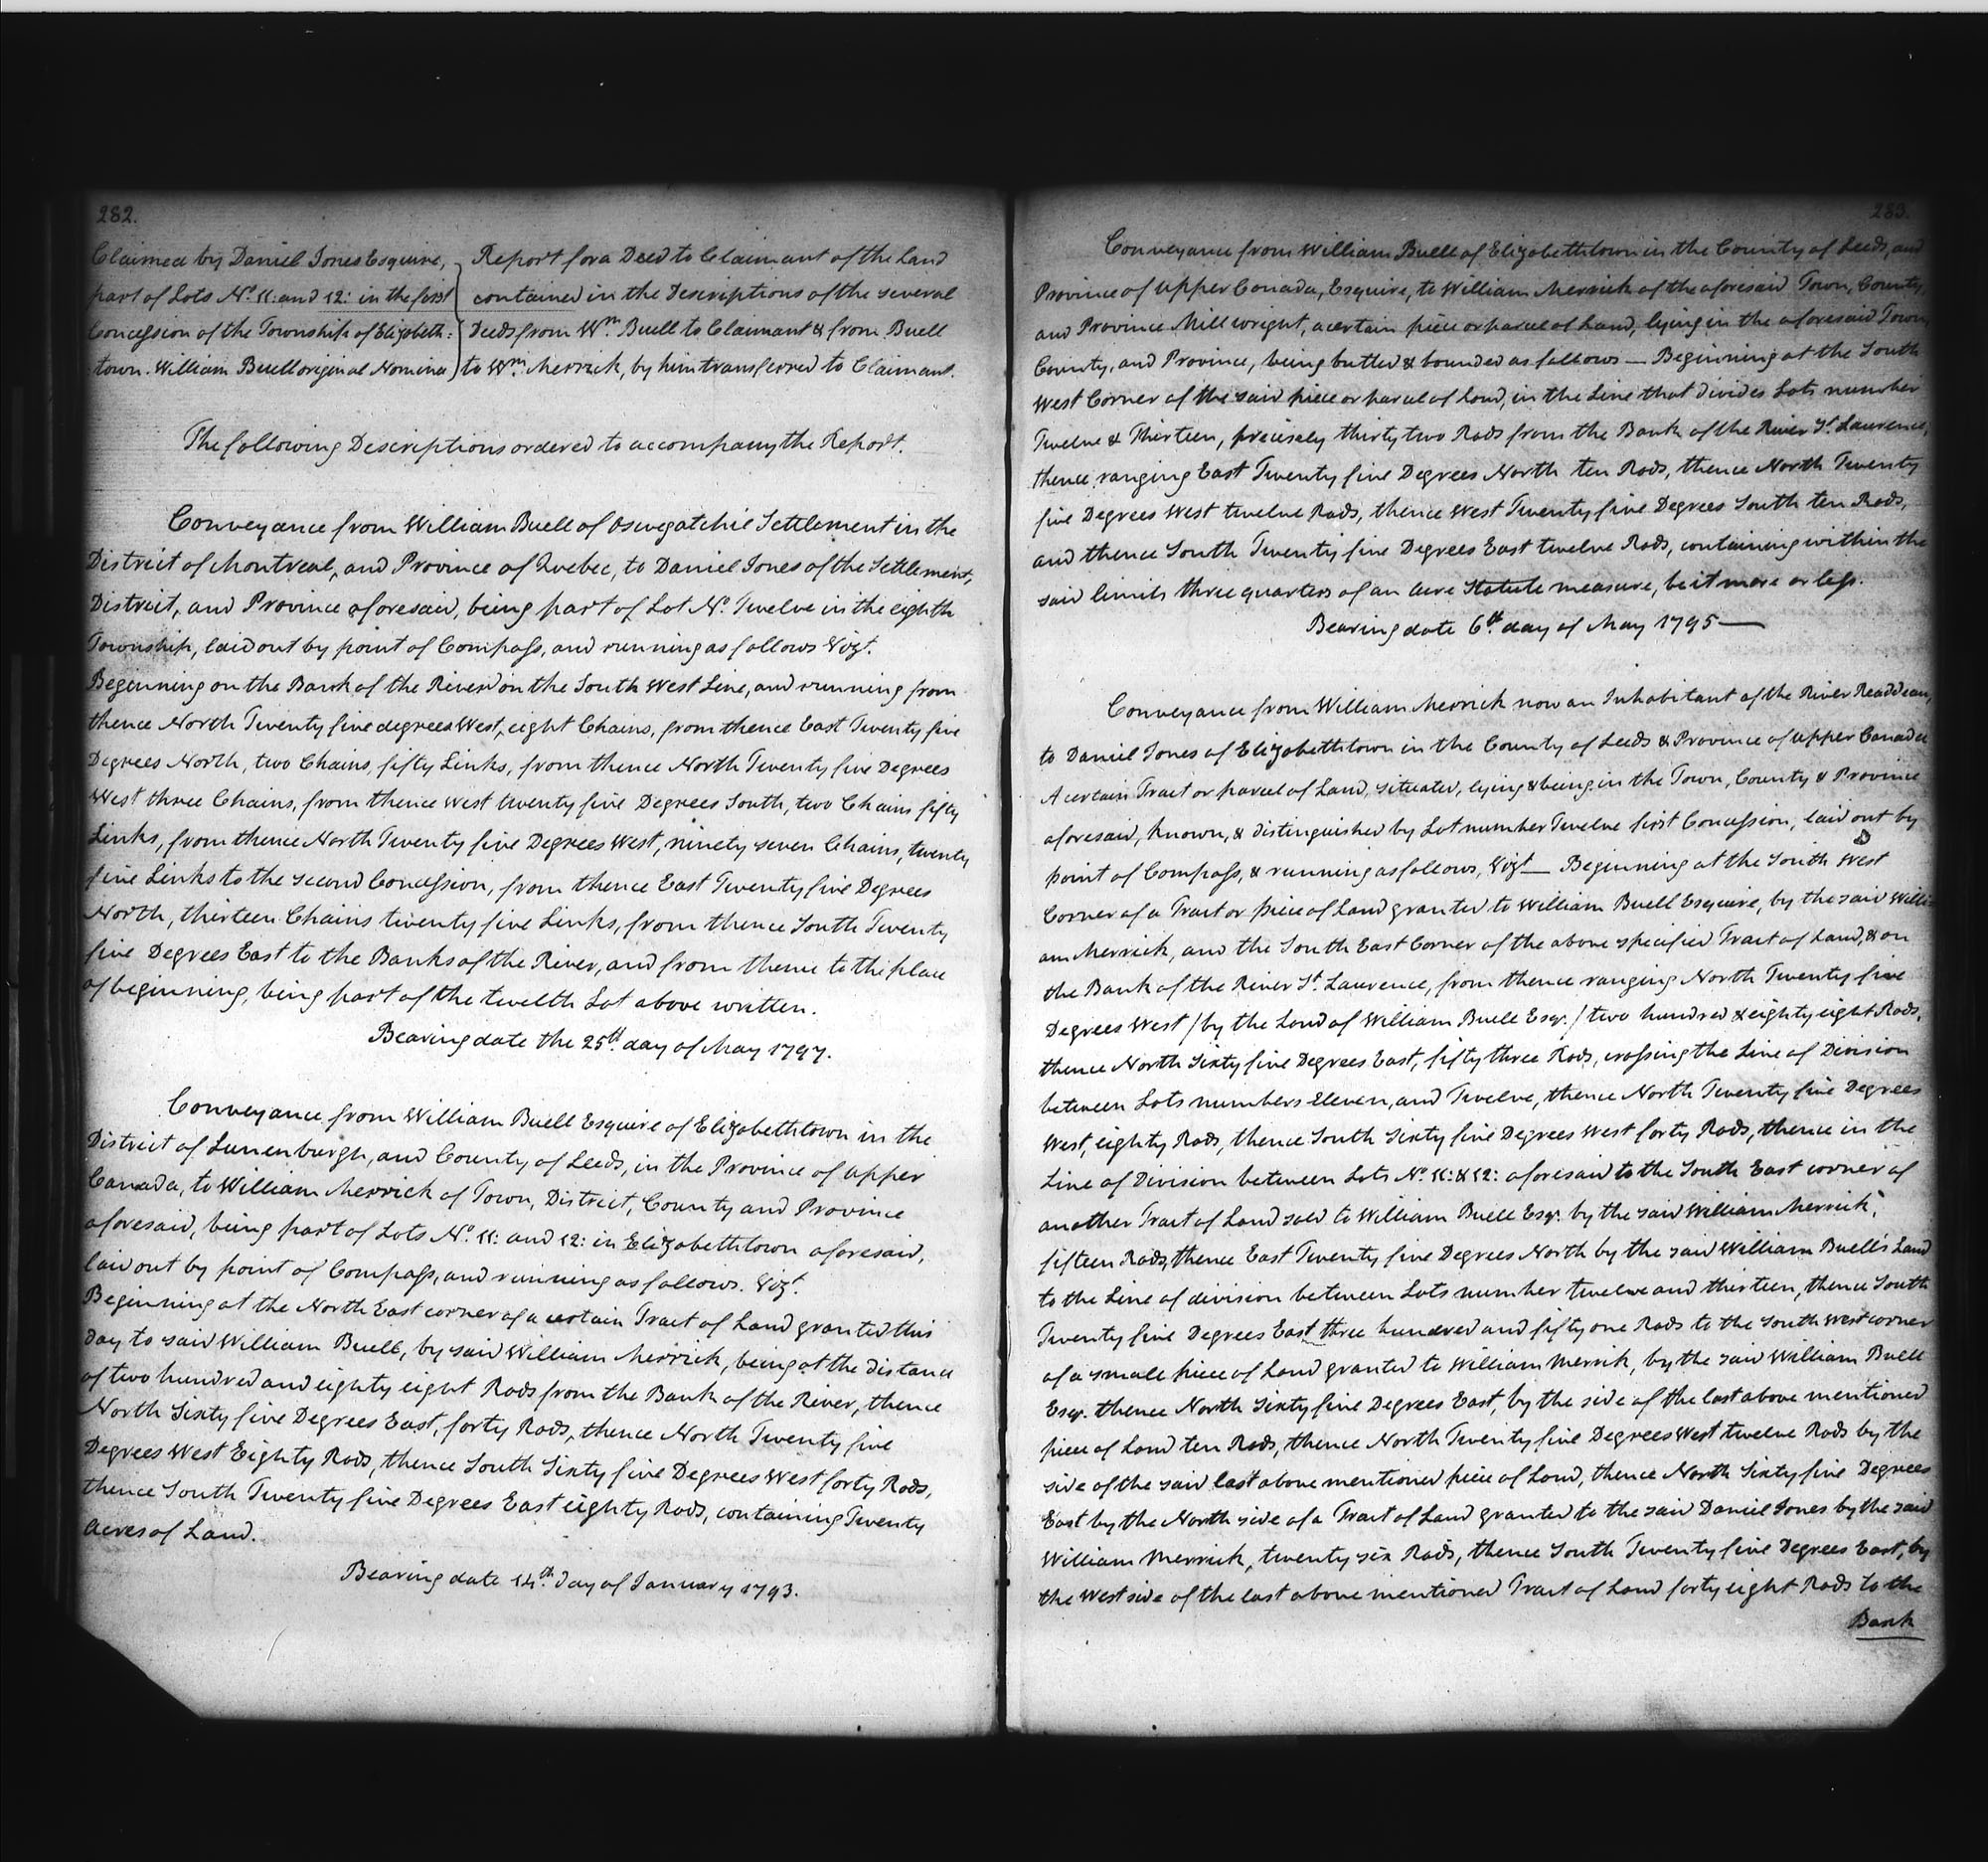 282.
Claimed by Daniel Jones Esquire,
part of Lots No. 11: and 12: in the first
Concession of the Township of Elizabeth:
town. William Buell original Nominee
Report for a Deed to Claimant of the Land
contained in the Descriptions of the several
Deeds from Wm. Buell to Claimant & from Buell
to Wm. Merrick, by him transferred to Claimant.
The following Descriptions ordered to accompany the Report.
Conveyance from William Buell of Oswegatchie Settlement in the
District of Montreal, and Province of Quebec, to Daniel Jones of the Settlement,
District, and Province aforesaid, being part of Lot No. Twelve in the eighth
Township, laid out by point of Compass, and running as follows Vizt.
Beginning on the Bank of the River on the South West Line, and running from
thence North Twenty five degrees West, eight Chains, from thence East Twenty five
Degrees North, two Chains, fifty Links, from thence North Twenty five Degrees
West three Chains, from thence West twenty five Degrees South, two Chains fifty
Links, from thence North Twenty five Degrees West, ninety seven Chains, twenty
five Links to the second Concession, from thence East Twenty five Degrees
North, thirteen Chains twenty five Links, from thence South Twenty
five Degrees East to the Banks of the River, and from thence to the place
of beginning, being part of the twelth Lot above written.
Bearing date the 25th. day of May 1797.
Conveyance from William Buell Esquire of Elizabethtown in the
District of Lunenburgh, and County of Leeds, in the Province of Upper
Canada, to William Merrick of Town, District, County and Province
aforesaid, being part of Lots No. 11: and 12: in Elizabethtown aforesaid,
laid out by point of Compass, and running as follows. Vizt.
Beginning at the North East corner of a certain Tract of Land granted this
day to said William Buell, by said William Merrick, being at the distance
of two hundred and eighty eight Rods from the Bank of the River, thence
North Sixty five Degrees East, forty Rods, thence North Twenty five
Degrees West Eighty Rods, thence South Sixty five Degrees West forty Rods,
thence South Twenty five Degrees East eighty Rods, containing Twenty
Acres of Land.
Bearing date 14th. day of January 1793.
283.
Conveyance from William Buell of Elizabethtown in the County of Leeds, and
Province of Upper Canada, Esquire, to William Merrick of the aforesaid Town, County,
and Province Millwright, a certain piece or parcel of Land, lying in the aforesaid Town,
County, and Province, being butted & bounded as follows — Beginning at the South
West Corner of the said piece or parcel of Land, in the Line that divides Lots number
Twelve & Thirteen, precisely thirty two Rods from the Bank of the River St. Laurence,
thence ranging East Twenty five Degrees North ten Rods, thence North Twenty
five Degrees West twelve Rods, thence West Twenty five Degrees South ten Rods,
and thence South Twenty five Degrees East twelve Rods, containing within the
said limits three quarters of an Acre Statute measure, be it more or less.
Bearing date 6th. day of May 1795 —
Conveyance from William Merrick now an Inhabitant of the River Readdeau,
to Daniel Jones of Elizabethtown in the County of Leeds & Province of Upper Canada
A certain Tract or parcel of Land, situated, lying & being in the Town, County & Province
aforesaid, known, & distinguished by Lot number Twelve first Concession, laid out by
point of Compass, & running as follows, Vizt — Beginning at the South West
Corner of a Tract or piece of Land granted to William Buell Esquire, by the said Willi-
am Merrick, and the South East Corner of the above specified Tract of Land, & on
the Bank of the River St. Laurence, from thence ranging North Twenty five
Degrees West / by the Land of William Buell Esqr. / two hundred & eighty eight Rods,
thence North Sixty five Degrees East, fifty three Rods, crossing the Line of Division
between Lots numbers Eleven, and Twelve, thence North Twenty five Degrees
West, eighty Rods, thence South Sixty five Degrees West forty Rods, thence in the
Line of Division between Lots No. 11: & 12: aforesaid to the South East corner of
another Tract of Land sold to William Buell Esqr. by the said William Merrick,
fifteen Rods, thence East Twenty five Degrees North by the said William Buell's Land
to the Line of division between Lots number twelve and thirteen, thence South
Twenty five Degrees East three hundred and fifty one Rods to the South West corner
of a small piece of Land granted to William Merrick, by the said William Buell
Esqr. thence North Sixty five Degrees East, by the side of the last above mentioned
piece of Land ten Rods, thence North Twenty five Degrees West twelve Rods by the
side of the said last above mentioned piece of Land, thence North Sixty five Degrees
East by the North side of a Tract of Land granted to the said Daniel Jones by the said
William Merrick, twenty six Rods, thence South Twenty five Degrees East, by
the West side of the last above mentioned Tract of Land forty eight Rods to the
Bank